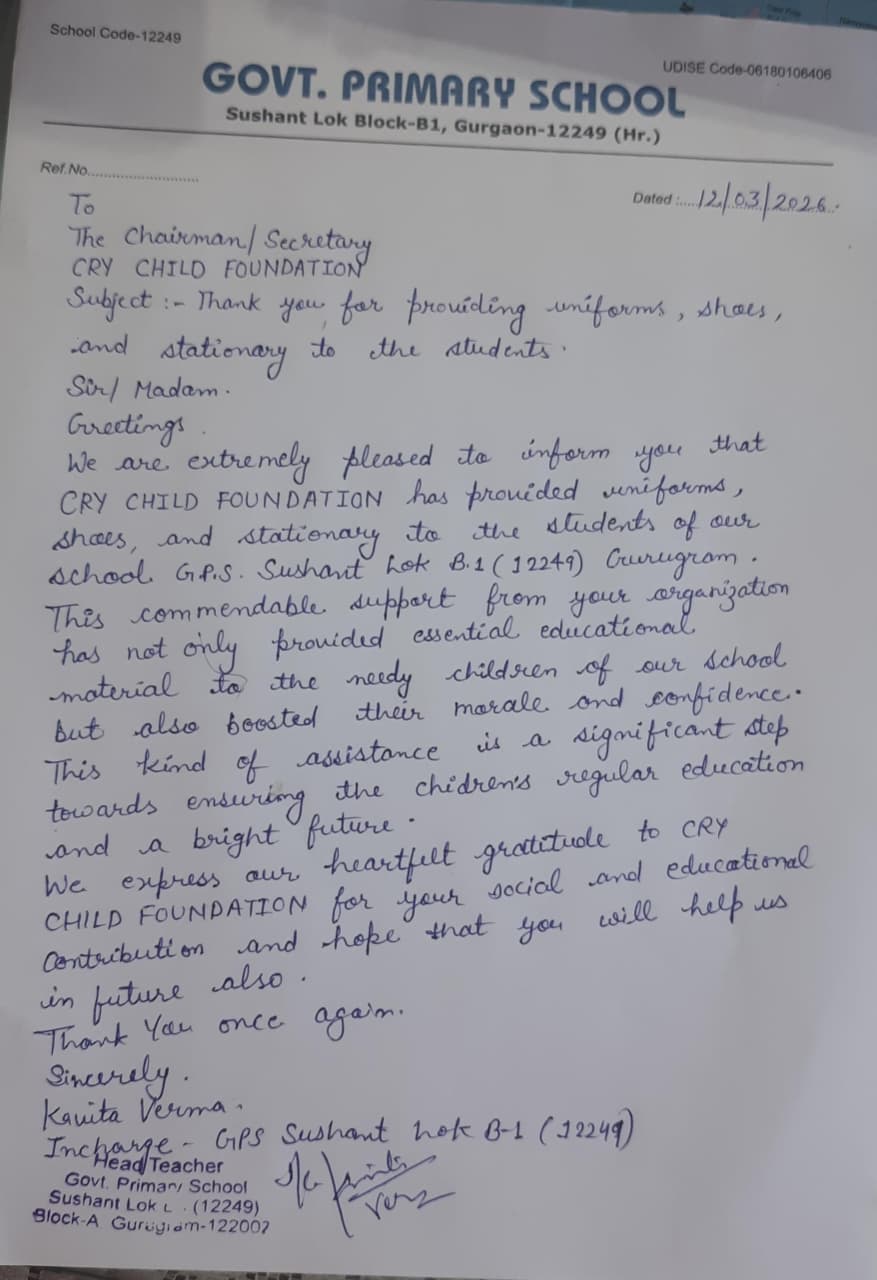 School Code-12249
UDISE Code-06180106406
GOVT. PRIMARY SCHOOL
Sushant Lok Block-B1, Gurgaon-12249 (Hr.)
Ref.No.............................
Dated :.....12/03/2026..
To
The Chairman/ Secretary
CRY CHILD FOUNDATION
Subject :- Thank you for providing uniforms, shoes,
and stationary to the students.
Sir/ Madam.
Greetings.
We are extremely pleased to inform you that
CRY CHILD FOUNDATION has provided uniforms,
shoes, and stationary to the students of our
school G.P.S. Sushant Lok B.1 (12249) Gurugram.
This commendable support from your organization
has not only provided essential educational
material to the needy children of our school
but also boosted their morale and confidence.
This kind of assistance is a significant step
towards ensuring the chidren's regular education
and a bright future.
We express our heartfelt gratitude to CRY
CHILD FOUNDATION for your social and educational
contribution and hope that you will help us
in future also.
Thank You once again.
Sincerely.
Kavita Verma.
Incharge - GPS Sushant Lok B-1 (12249)
Head Teacher
Govt. Primary School
Sushant Lok (12249)
Block-A Gurugram-122002